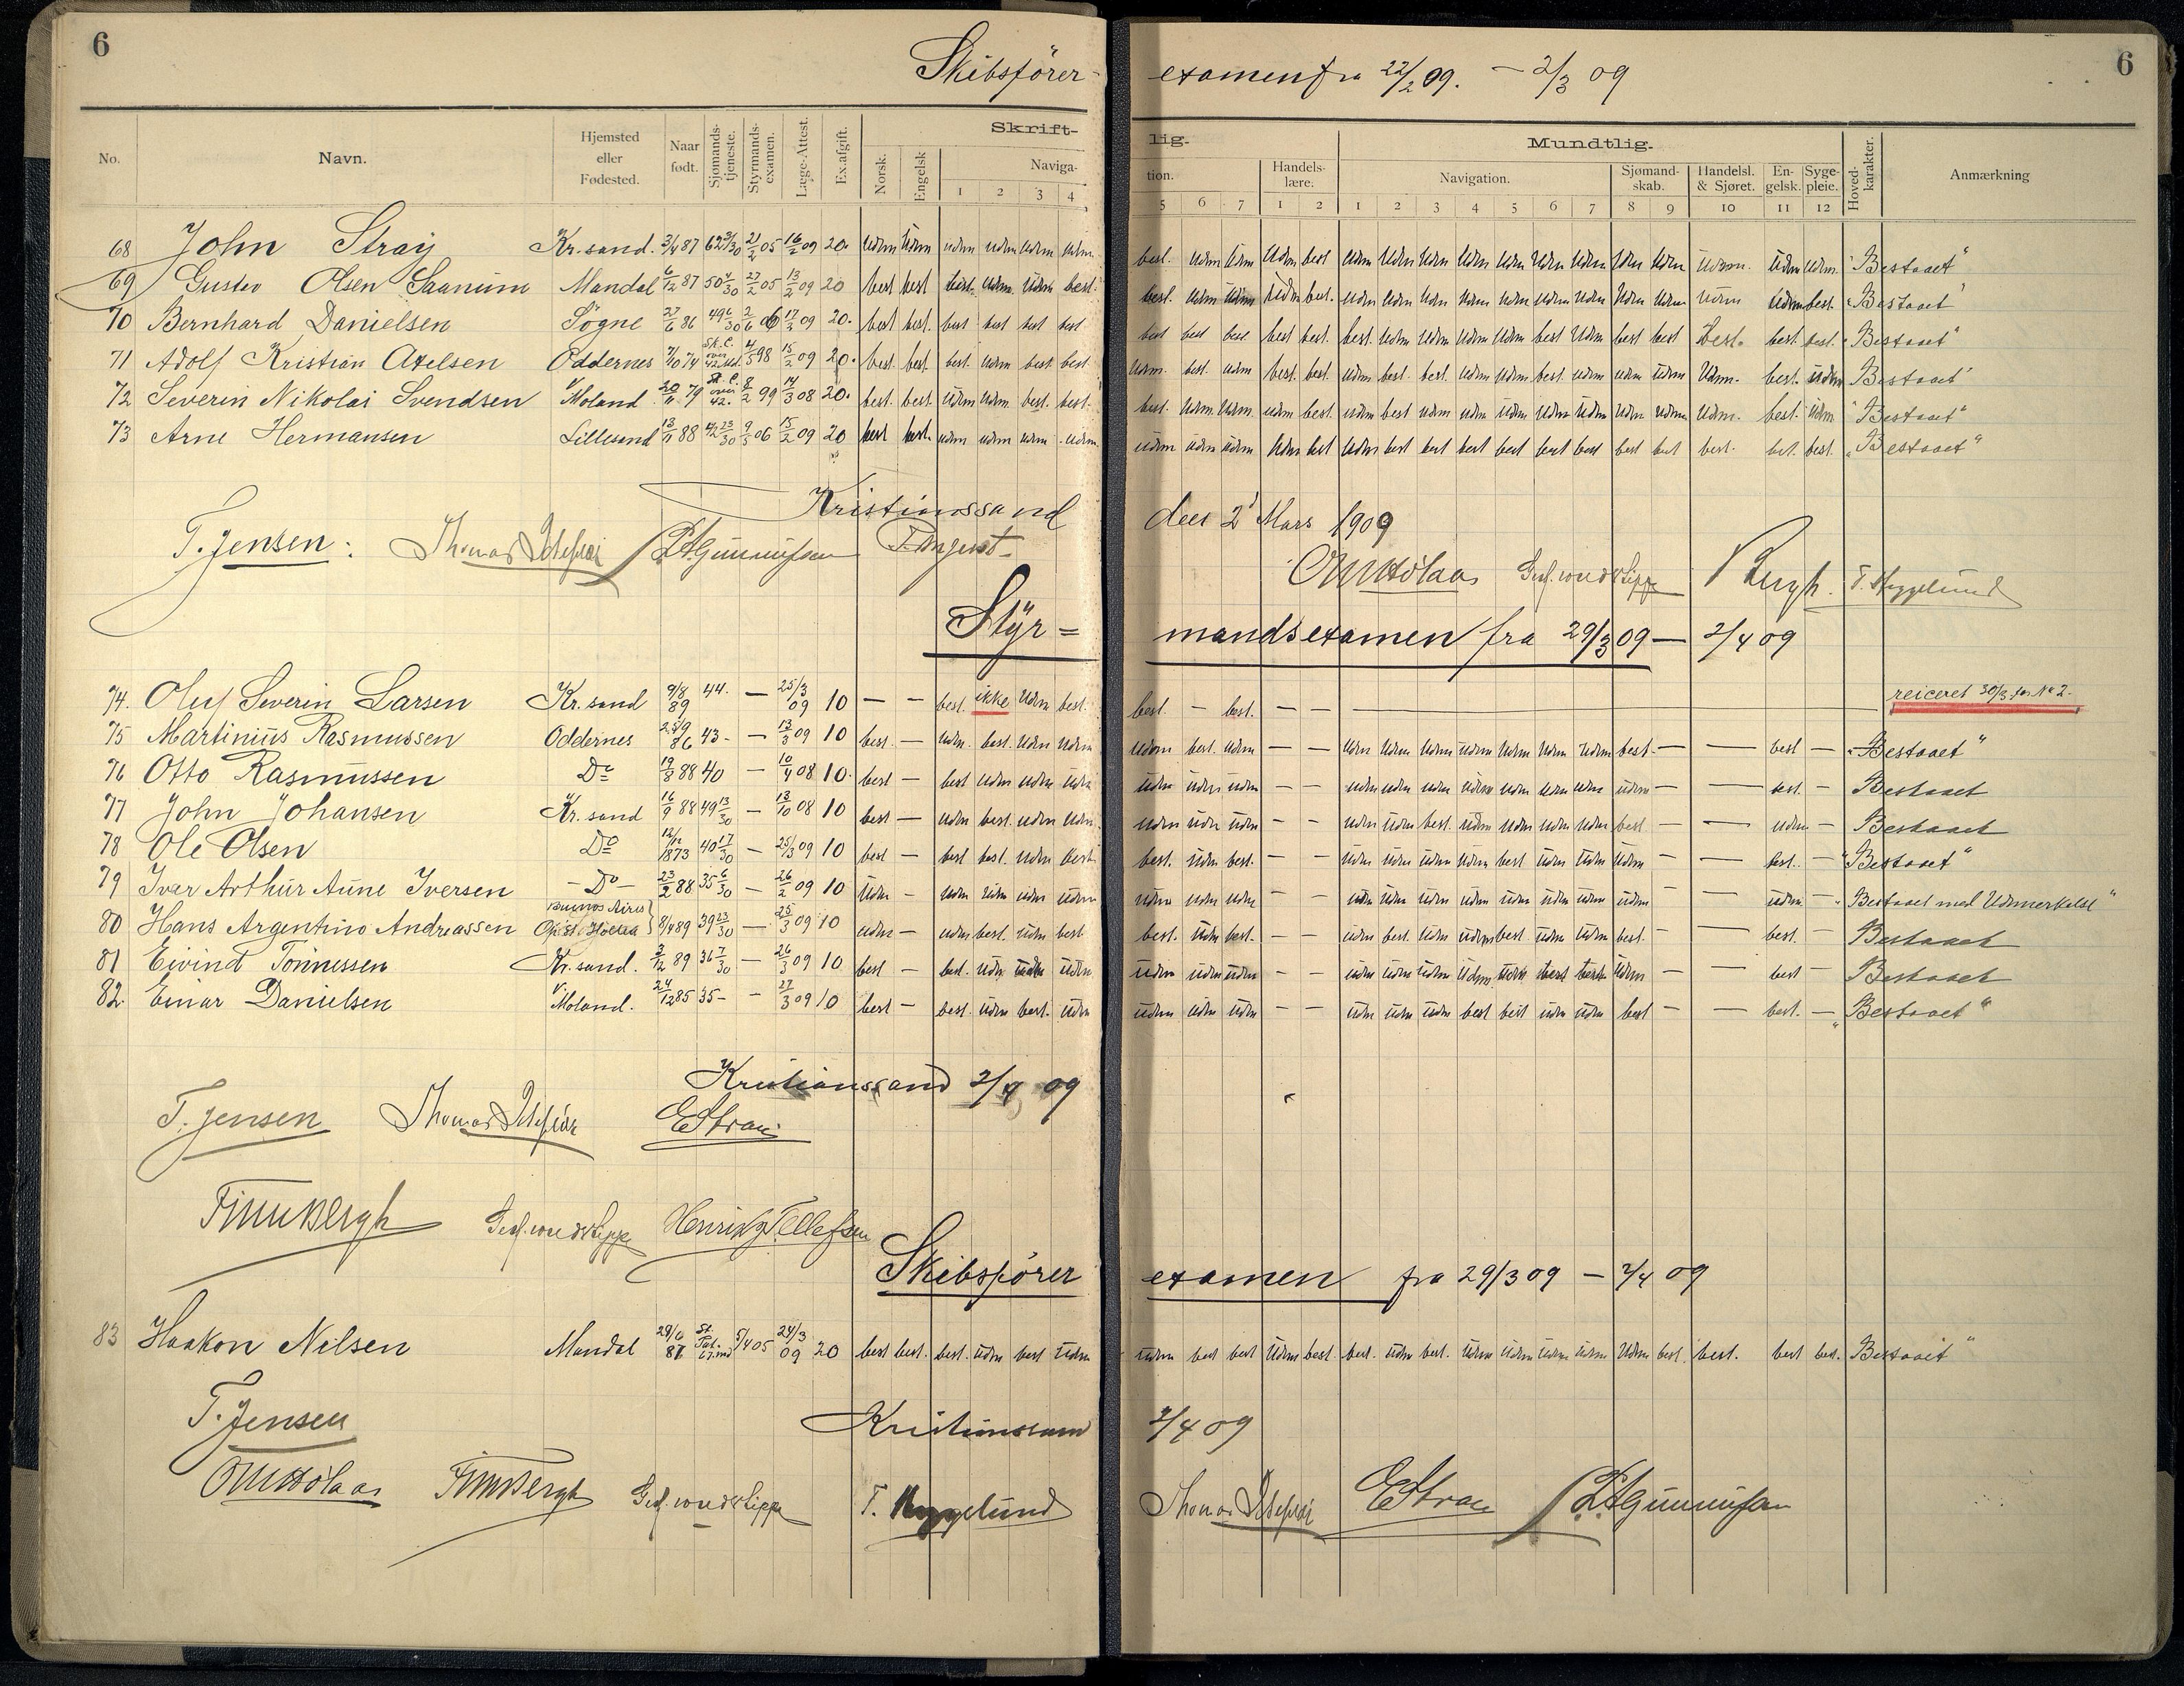 6
6
Skibsfører-
examen fra 22/2 09. – 2/3 09
No.
Navn.
Hjemsted eller Fødested.
Naar født.
Sjømands-tjeneste.
Styrmands-examen.
Læge-Attest.
Ex.afgift.
Skrift-
lig.
Norsk.
Engelsk
Naviga-
tion.
1 2 3 4 5 6 7
Handels-lære.
1 2
Mundtlig.
Navigation.
1 2 3 4 5 6 7
Sjømand-skab.
8 9
Handelsl. & Sjøret.
10
En-gelsk.
11
Syge-pleie.
12
Hoved-karakter.
Anmærkning
68 John Stray Kr.sand. 3/4 87 21/2 05 16/2 09 20. udm udm udm udm udm udm best. udm udm udm best udm udm udm udm udm udm udm udm udm udm. udm udm. "Bestaaet"
69 Gustav Olsen Saanum Mandal 6/12 87 50 4/30 27/2 05 13/2 09 20 best best best. udm. udm best. best. udm udm udm best. udm udm udm udm udm udm udm udm udm udm udm best. "Bestaaet"
70 Bernhard Danielsen Søgne 27/6 86 49 6/30 2/6 06 17/2 09 20. best best. best best best best best best best best. best. best. udm udm udm udm best udm best best best. best. best. "Bestaaet"
71 Adolf Kristian Axelsen Oddernes 7/10 74 4/5 98 15/2 09 20. best. best. best. udm best. best udm. best. udm best. best. udm best. best. udm udm best. udm udm udm udm. best. udm "Bestaaet"
72 Severin Nikolai Svendsen V. Moland 20/11 79 8/2 99 14/3 08 20. best. best. udm udm. best. best. best. udm. udm. udm best. udm best udm udm udm udm udm udm udm udm. best. udm "Bestaaet"
73 Arne Hermansen Lillesand 13/11 88 42 23/30 9/5 06 15/2 09 20 best best. udm udm udm udm udm udm udm udm best udm best best best best best best best best best. best. best. "Bestaaet"
Kristianssand den 2' Mars 1909
T. Jensen.
Styr=
mandsexamen fra 29/3 09 — 2/4 09
74. Oluf Severin Larsen Kr.sand 9/8 89 44. — 25/3 09 10 — — best. ikke udm best. best. — best. — — reiceret 30/3 for No 2.
75 Martinius Rasmussen Oddernes 25/9 86 43 - — 13/3 09 10 best. — udm. best. udm udm udm best. udm — — udm udm udm udm udm udm udm best. — — best — "Bestaaet"
76 Otto Rasmussen Do 19/3 88 40 — 10/4 08 10. best — best udm udm udm udm udm udm — — udm udm udm udm udm udm udm udm — — best. — Bestaaet
77 John Johansen Kr.sand 16/9 88 49 13/30 — 13/10 08 10 best — udm best. udm udm. udm udm udm — — udm udm best. udm udm udm udm best — — udm — Bestaaet
78 Ole Olsen Do 12/12 1873 40 17/30 — 25/3 09 10 best — best best. udm best. best. udm best. — — udm udm udm udm best udm udm udm — — best. — "Bestaaet"
79 Ivar Arthur Aune Iversen - Do - 23/2 88 35 6/30 — 26/2 09 10 udm — udm udm udm udm udm udm udm — — udm udm udm udm udm udm udm udm — — udm — "Bestaaet med Udmerkelse"
80 Hans Argentino Andreassen Buenos Aires 8/4 89 39 23/30 — 25/3 09 10 udm — udm best. udm best best. udm best. — — udm best. udm udm best. udm udm best. — — best. — Bestaaet
81 Eivind Tønnessen Kr.sand. 3/12 89 36 7/30 — 26/3 09 10 best — best. udm udm udm udm udm udm — — udm udm udm udm best best udm — — best — Bestaaet
82 Einar Danielsen V. Moland. 24/12 85 35 - — 27/3 09 10 best — best. udm best. udm udm udm udm — — udm udm udm best best udm udm best — — best. — "Bestaaet"
Kristianssand 2/4 09
T. Jensen
Finn Bergh
Henrik Tellefsen
Skibsfører
examen fra 29/3 09 — 2/4 09
83 Haakon Nilsen Mandal 5/4 05 24/3 09 20 best best. best. udm best udm udm best best udm best. best. udm best. udm udm udm udm udm best. best. best best. Bestaaet"
Kristianssand 2/4 09
T. Jensen
Finn Bergh